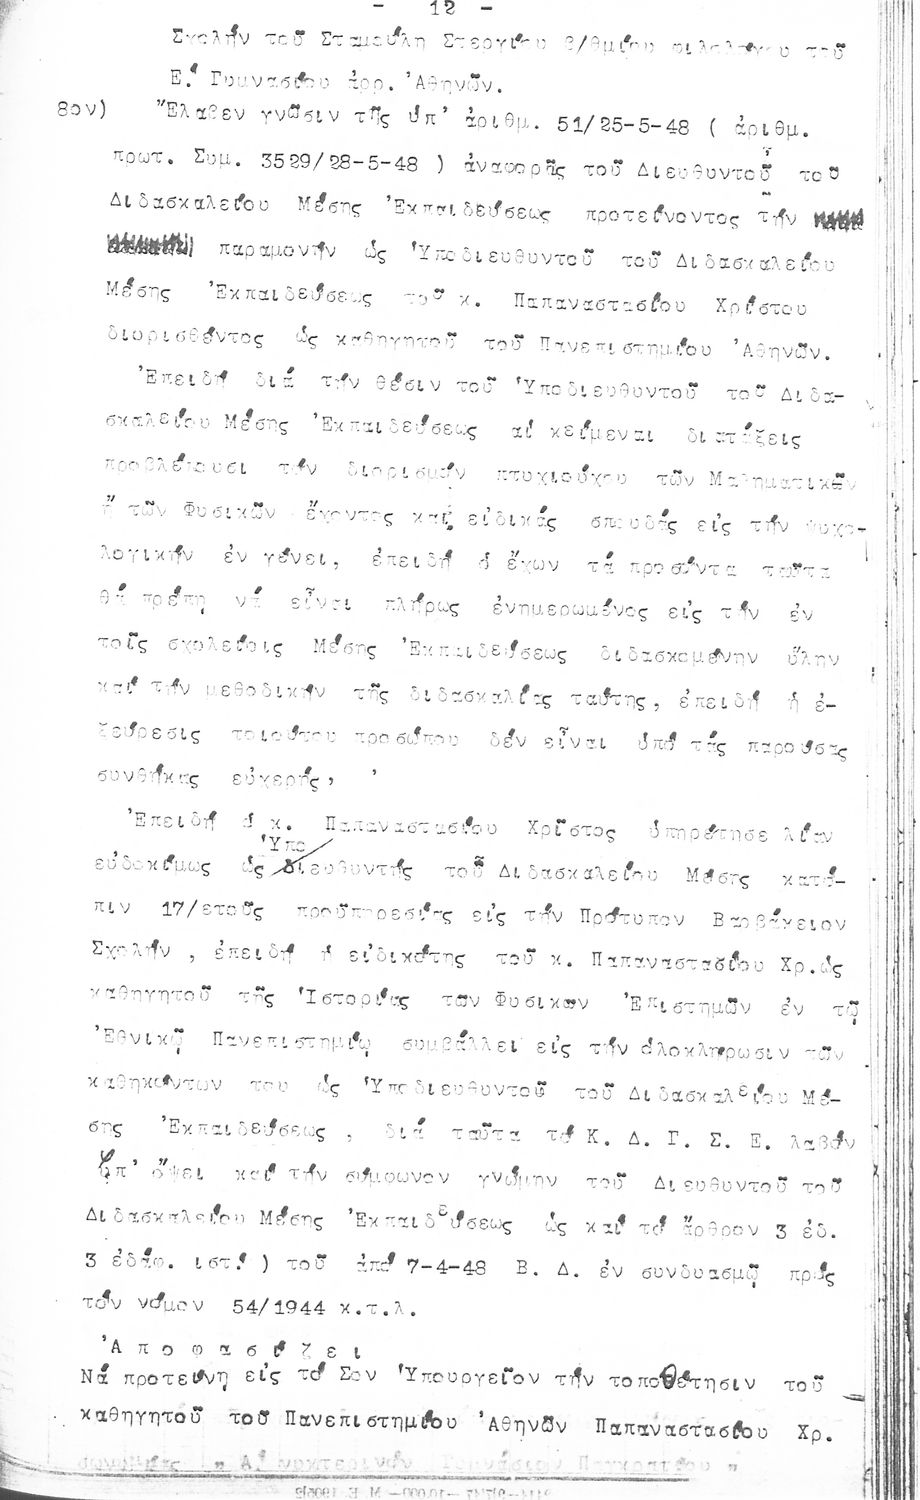 - 12 -
Σχολήν τοῦ Σταμούλη Στεργίου β/θμίου φιλολόγου τοῦ
Ε! Γυμνασίου ἀρρ. Ἀθηνῶν.
8ον) Ἔλαβεν γνῶσιν τῆς ὑπ' ἀριθμ. 51/25-5-48 ( ἀριθμ.
πρωτ. Συμ. 3529/28-5-48 ) ἀναφορᾶς τοῦ Διευθυντοῦ τοῦ
Διδασκαλείου Μέσης Ἐκπαιδεύσεως προτείνοντος τήν
παραμονήν ὡς Ὑποδιευθυντοῦ τοῦ Διδασκαλείου
Μέσης Ἐκπαιδεύσεως τοῦ κ. Παπαναστασίου Χρίστου
διορισθέντος ὡς καθηγητοῦ τοῦ Πανεπιστημίου Ἀθηνῶν.
Ἐπειδή διά τήν θέσιν τοῦ Ὑποδιευθυντοῦ τοῦ Διδα-
σκαλείου Μέσης Ἐκπαιδεύσεως αἱ κείμεναι διατάξεις
προβλέπουσι τόν διορισμόν πτυχιούχου τῶν Μαθηματικῶν
ἤ τῶν Φυσικῶν ἔχοντος καί εἰδικάς σπουδάς εἰς τήν ψυχο-
λογικήν ἐν γένει, ἐπειδή ὁ ἔχων τά προσόντα ταῦτα
θά πρέπη νά εἶναι πλήρως ἐνημερωμένος εἰς τήν ἐν
τοῖς σχολείοις Μέσης Ἐκπαιδεύσεως διδασκομένην ὕλην
καί τήν μεθοδικήν τῆς διδασκαλίας ταύτης, ἐπειδή ἡ ἐ-
ξεύρεσις τοιούτου προσώπου δέν εἶναι ὑπό τάς παρούσας
συνθήκας εὐχερής,
Ἐπειδή ὁ κ. Παπαναστασίου Χρῖστος ὑπηρέτησε λίαν
εὐδοκίμως ὡς Ὑποδιευθυντής τοῦ Διδασκαλείου Μέσης κατό-
πιν 17/ετοῦς προϋπηρεσίας εἰς τήν Πρότυπον Βαρβάκειον
Σχολήν , ἐπειδή ἡ εἰδικότης τοῦ κ. Παπαναστασίου Χρ.ὡς
καθηγητοῦ τῆς Ἱστορίας τῶν Φυσικῶν Ἐπιστημῶν ἐν τῷ
Ἐθνικῷ Πανεπιστημίῳ συμβάλλει εἰς τήν ὁλοκλήρωσιν τῶν
καθηκόντων του ὡς Ὑποδιευθυντοῦ τοῦ Διδασκαλείου Μέ-
σης Ἐκπαιδεύσεως , διά ταῦτα τό Κ. Δ. Γ. Σ. Ε. λαβόν
ὑπ' ὄψει καί τήν σύμφωνον γνώμην τοῦ Διευθυντοῦ τοῦ
Διδασκαλείου Μέσης Ἐκπαιδεύσεως ὡς καί τό ἄρθρον 3 ἐδ.
3 ἐδάφ. ιστ! ) τοῦ ἀπό 7-4-48 Β. Δ. ἐν συνδυασμῷ πρός
τόν νόμον 54/1944 κ.τ.λ.
Ἀ π ο φ α σ ί ζ ε ι
Νά προτείνη εἰς τό Σον Ὑπουργεῖον τήν τοποθέτησιν τοῦ
καθηγητοῦ τοῦ Πανεπιστημίου Ἀθηνῶν Παπαναστασίου Χρ.